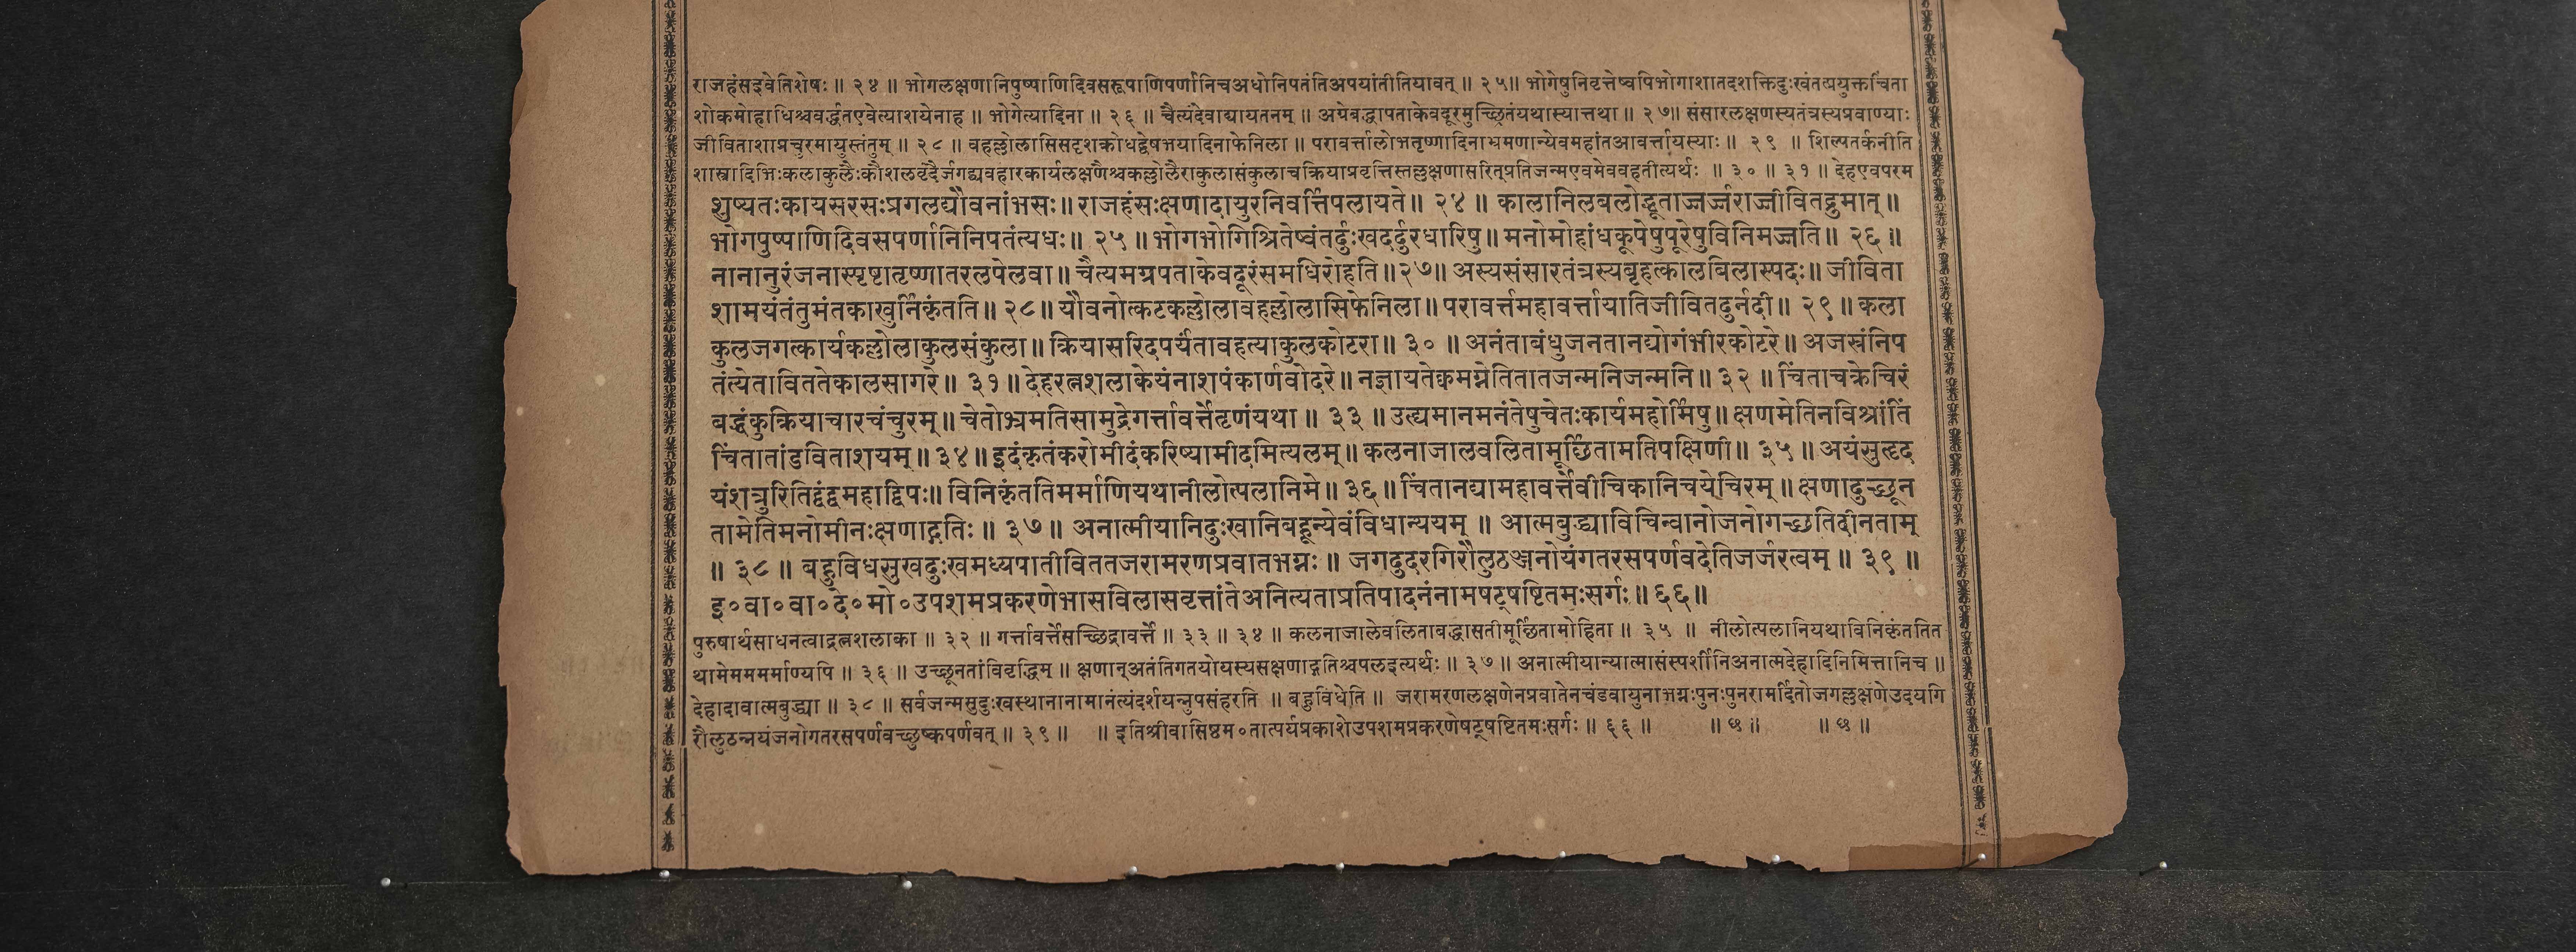 राजहंसइवेतिशेषः ॥ २४ ॥ भोगलक्षणानिपुष्पाणिदिवसरूपाणिपर्णानिचअधोनिपतंतिअपयांतीतियावत् ॥ २५॥ भोगेषुनिवृत्तेष्वपिभोगाशातदशक्तिदुःखंतत्प्रयुक्तचिंता
शोकमोहाधिश्चवर्द्धतएवेत्याशयेनाह ॥ भोगेत्यादिना ॥ २६ ॥ चैत्यंदेवाद्यायतनम् ॥ अग्रेबद्धापताकेवदूरमुच्छ्रितंयथास्यात्तथा ॥ २७॥ संसारलक्षणस्यतंत्रस्यप्रवाण्याः
जीविताशाप्रचुरमायुस्तंतुम् ॥ २८ ॥ वहल्लोलासिसदृशक्रोधद्वेषभयादिनाफेनिला ॥ परावर्त्तालोभतृष्णादिनाभ्रमणान्येवमहांतआवर्त्तायस्याः ॥ २९ ॥ शिल्पतर्कनीति
शास्त्रादिभिःकलाकुलैःकौशलवृंदैर्जगद्व्यवहारकार्यलक्षणैश्चकल्लोलैराकुलासंकुलाचक्रियाप्रवृत्तिस्तल्लक्षणासरित्प्रतिजन्मएवमेववहतीत्यर्थः ॥ ३० ॥ ३१ ॥ देहएवपरम
शुष्यतःकायसरसःप्रगलद्यौवनांभसः॥ राजहंसःक्षणादायुरनिवर्त्तिपलायते॥ २४ ॥ कालानिलबलोद्धूताज्जर्ज्जराज्जीवितद्रुमात्॥
भोगपुष्पाणिदिवसपर्णानिनिपतंत्यधः॥ २५॥ भोगभोगिश्रितेष्वंतर्दुःखदर्दुरधारिषु॥ मनोमोहांधकूपेषुपूरेषुविनिमज्जति॥ २६॥
नानानुरंजनास्पृष्टातृष्णातरलपेलवा॥ चैत्यमग्रपताकेवदूरंसमधिरोहति॥२७॥ अस्यसंसारतंत्रस्यबृहत्कालबिलास्पदः॥ जीविता
शामयंतंतुमंतकाखुर्निकृंतति॥ २८॥ यौवनोत्कटकल्लोलावहल्लोलासिफेनिला॥ परावर्त्तमहावर्त्तायातिजीवितदुर्नदी॥ २९॥ कला
कुलजगत्कार्यकल्लोलाकुलसंकुला॥ क्रियासरिदपर्यंतावहत्याकुलकोटरा॥ ३० ॥ अनंताबंधुजनतानद्योगंभीरकोटरे॥ अजस्रंनिप
तंत्येताविततेकालसागरे॥ ३१॥ देहरत्नशलाकेयंनाशपंकार्णवोदरे॥ नज्ञायतेक्वमग्नेतितातजन्मनिजन्मनि॥ ३२ ॥ चिंताचक्रेचिरं
बद्धंकुक्रियाचारचंचुरम्॥ चेतोभ्रमतिसामुद्रेगर्त्तावर्त्तेतृणंयथा ॥ ३३ ॥ उह्यमानमनंतेषुचेतःकार्यमहोर्मिषु॥ क्षणमेतिनविश्रांतिं
चिंतातांडविताशयम्॥ ३४॥ इदंकृतंकरोमीदंकरिष्यामीदमित्यलम्॥ कलनाजालवलितामूर्छितामतिपक्षिणी॥ ३५॥ अयंसुहृद
यंशत्रुरितिद्वंद्वमहाद्विपः॥ विनिकृंततिमर्माणियथानीलोत्पलानिमे॥ ३६॥ चिंतानद्यामहावर्त्तेवीचिकानिचयेचिरम्॥ क्षणादुच्छून
तामेतिमनोमीनःक्षणाद्गतिः॥ ३७॥ अनात्मीयानिदुःखानिबहून्येवंविधान्ययम् ॥ आत्मबुद्ध्याविचिन्वानोजनोगच्छतिदीनताम्
॥ ३८ ॥ बहुविधसुखदुःखमध्यपातीविततजरामरणप्रवातभग्नः॥ जगदुदरगिरौलुठञ्जनोयंगतरसपर्णवदेतिजर्जरत्वम्॥ ३९ ॥
इ०वा०वा०दे०मो०उपशमप्रकरणेभासविलासवृत्तांतेअनित्यताप्रतिपादनंनामषट्षष्टितमःसर्गः॥ ६६॥
पुरुषार्थसाधनत्वाद्रत्नशलाका ॥ ३२ ॥ गर्त्तावर्त्तेसच्छिद्रावर्त्ते ॥ ३३ ॥ ३४ ॥ कलनाजालेवलिताबद्धासतीमूर्छितामोहिता ॥ ३५ ॥ नीलोत्पलानियथाविनिकृंततित
थामेममममर्माण्यपि ॥ ३६ ॥ उच्छूनतांविवृद्धिम् ॥ क्षणान्अतंतिगतयोयस्यसक्षणाद्गतिश्चपलइत्यर्थः ॥ ३७ ॥ अनात्मीयान्यात्मासंस्पर्शीनिअनात्मदेहादिनिमित्तानिच ॥
देहादावात्मबुद्ध्या ॥ ३८ ॥ सर्वजन्मसुदुःखस्थानानामानंत्यंदर्शयन्नुपसंहरति ॥ बहुविधेति ॥ जरामरणलक्षणेनप्रवातेनचंडवायुनाभग्नःपुनःपुनरामर्दितोजगल्लक्षणेउदयगि
रौलुठन्नयंजनोगतरसपर्णवच्छुष्कपर्णवत् ॥ ३९ ॥ ॥ इतिश्रीवासिष्ठम०तात्पर्यप्रकाशेउपशमप्रकरणेषट्षष्टितमःसर्गः ॥ ६६ ॥ ॥ छ ॥ ॥ छ ॥